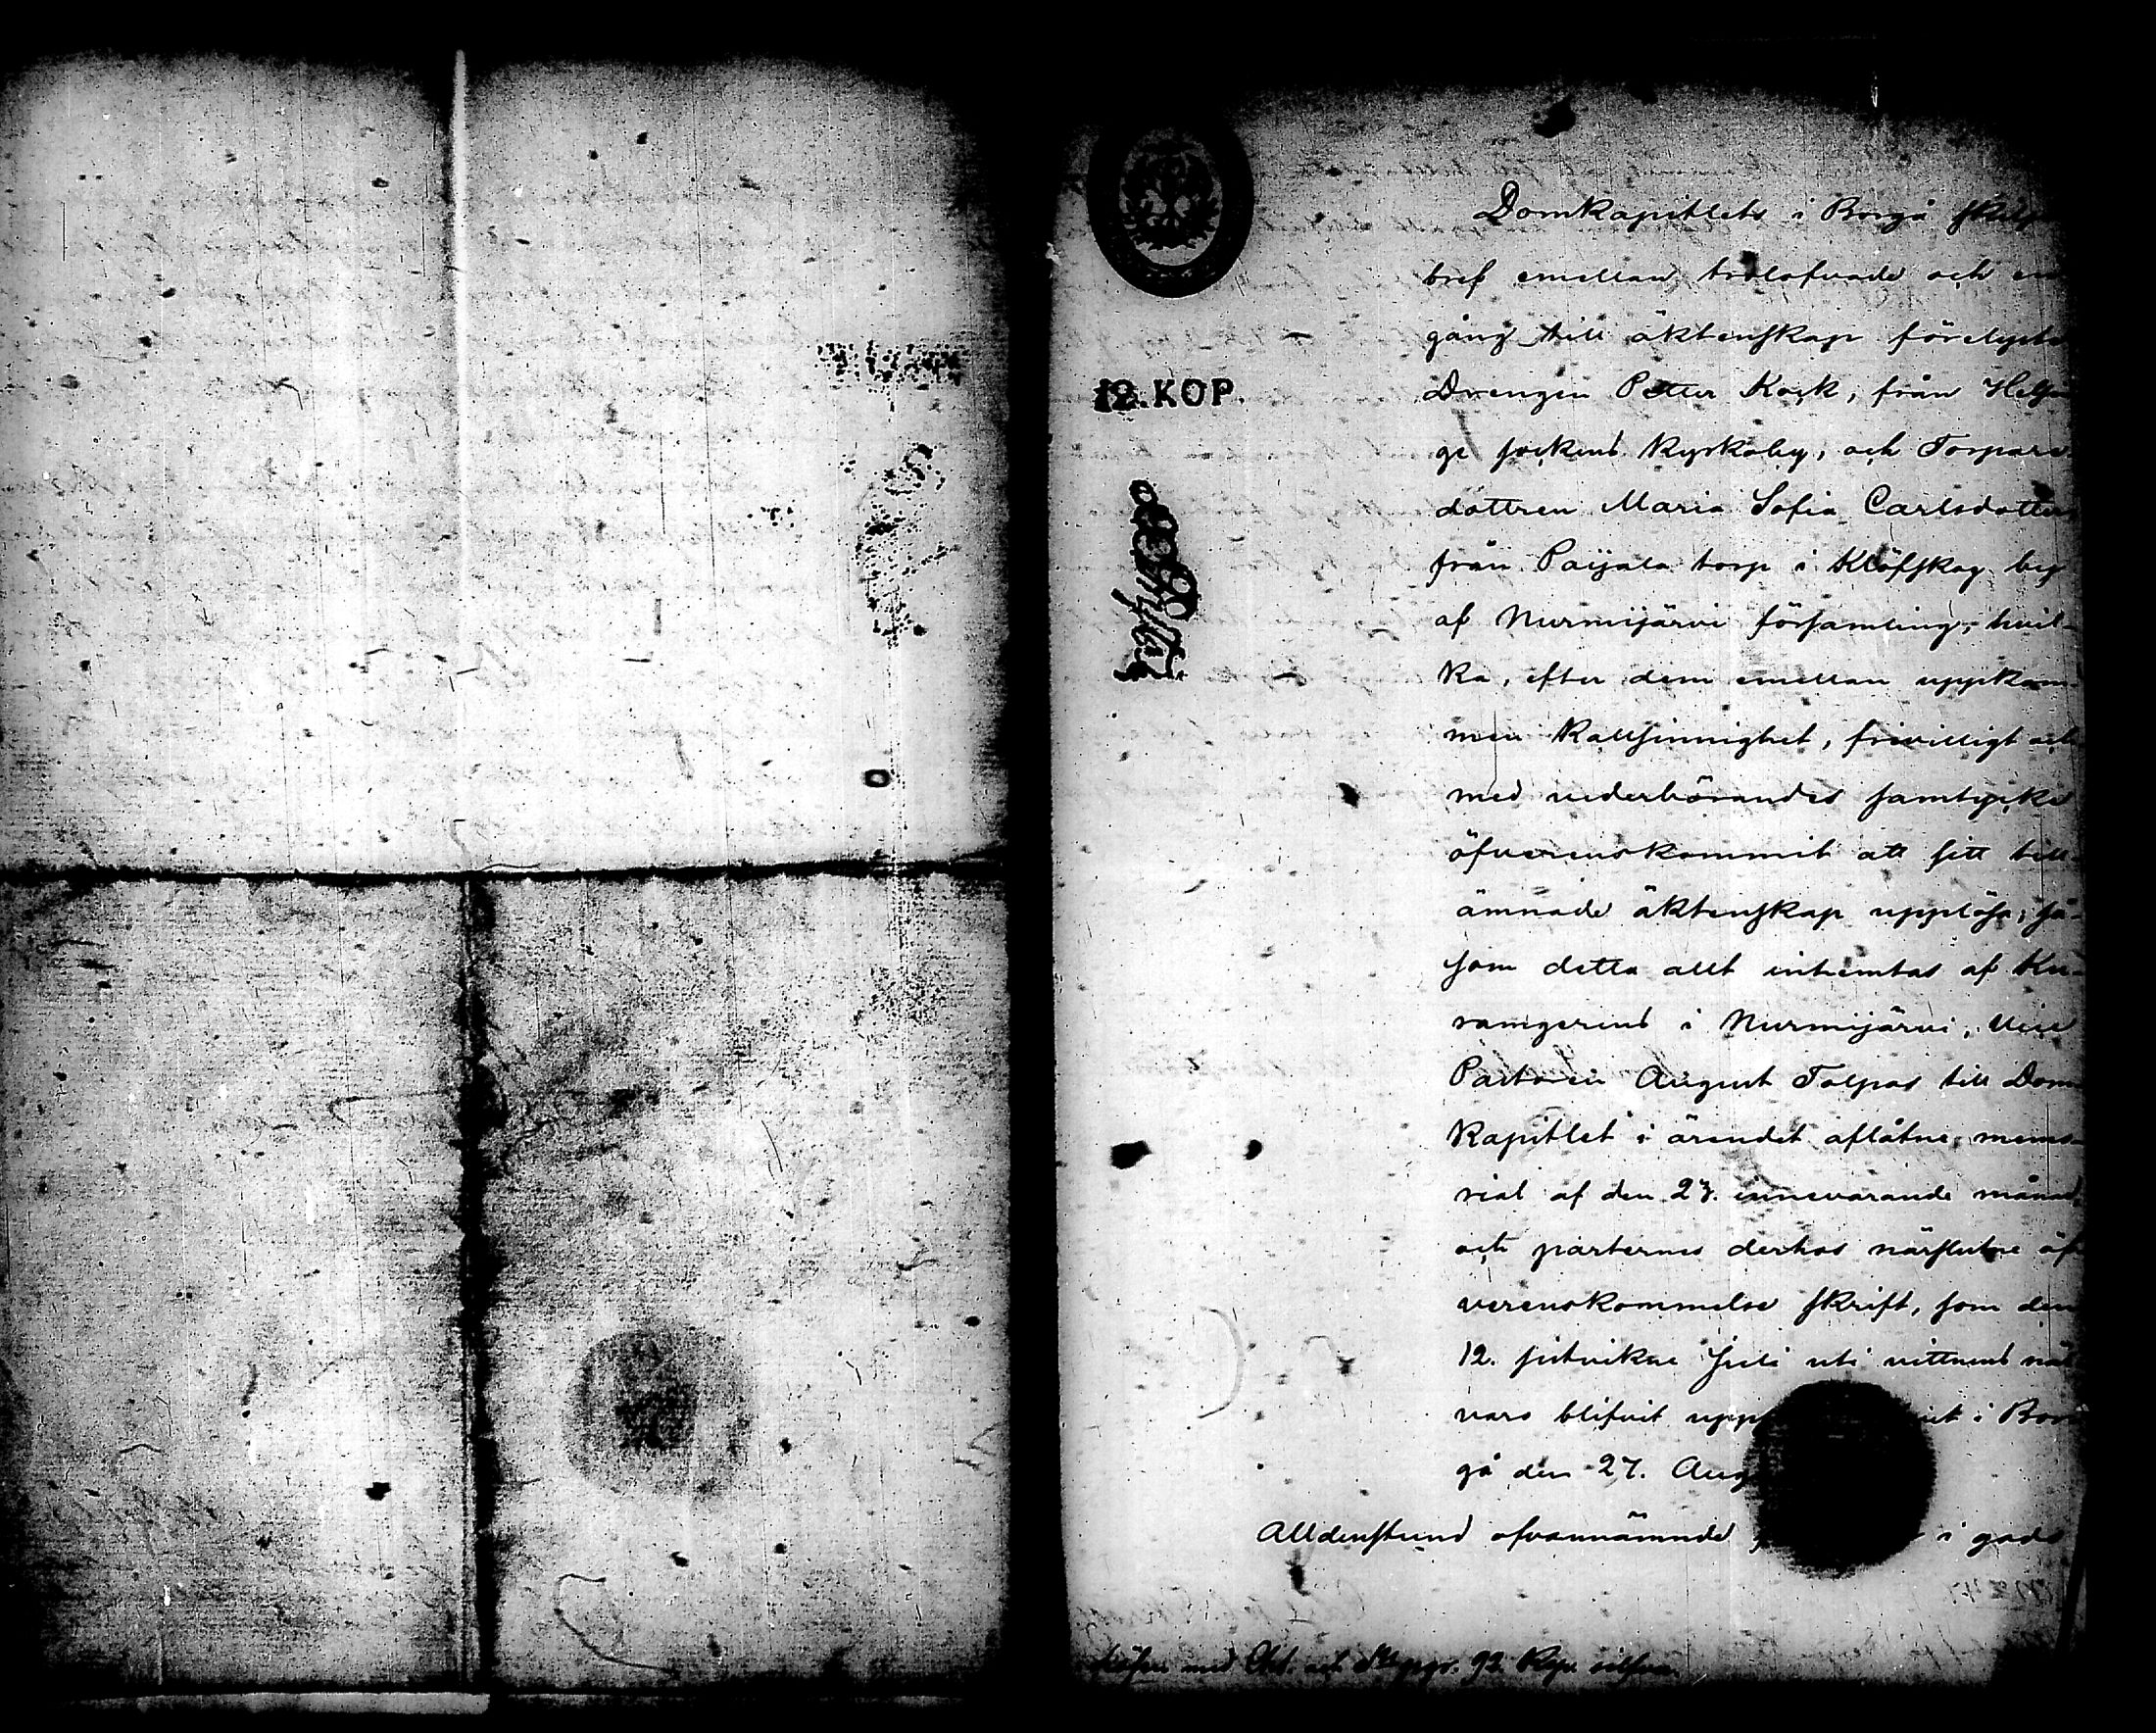 Domkapitlets i Borgå skiljo
bref emellan trolofvade och en
gång till äktenskap förelyste
12. KOP.
Drengen Petter Kock, från Helsin
ge sockens Kyrkoby, och Torpare
dottren Maria Sofia Carlsdotter
från Paijala torp i Klöfskog by
af Nurmijärvi församling, hvil-
ka, efter dem emellan uppkom-
men kallsinnighet, frivilligt och
med vederbörandes samtycke
öfverenskommit att sitt till-
ämnade äktenskap upplösa, så-
som detta allt inhemtas af Ky-
rkoherdens i Nurmijärvi, Vice
Pastoren August Talpos till Dom
kapitlet i ärendet aflåtne memo-
rial af den 23. innevarande månad
och parternes derhos närslutne öf
verenskommelse skrift, som den
12. sistvikne Juli uti vittnens när
varo blifvit upp i Bor
gå den 27. Aug
Alldenstund ofvannämnde i gods
Lösen med Cht. och 92. Kop. silfver.